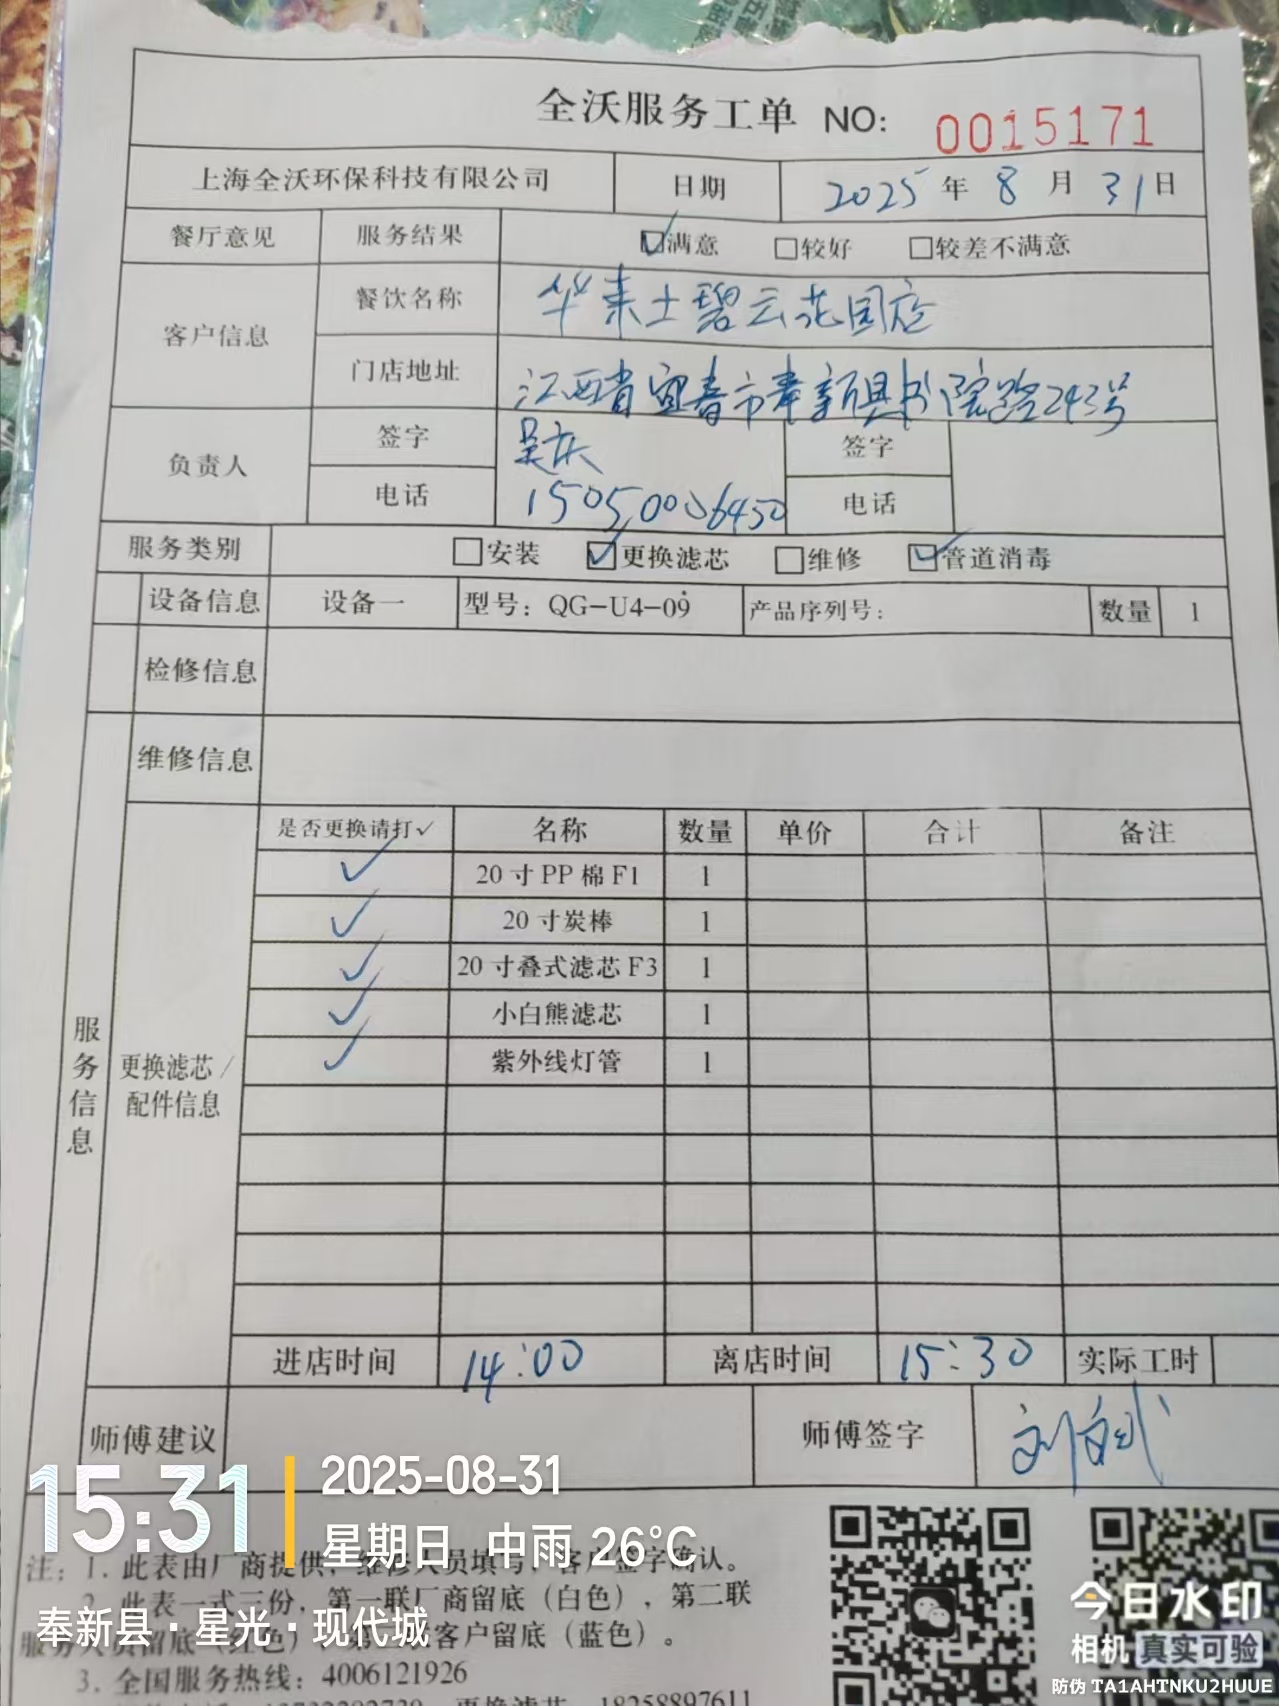 全沃服务工单 NO: 0015171
上海全沃环保科技有限公司 日期 2025年8月31日
餐厅意见 服务结果 ☑满意 □较好 □较差不满意
客户信息 餐饮名称 华莱士碧云花园店
门店地址 江西省宜春市奉新县书院路243号
负责人 签字 签字
电话 15050006450 电话
服务类别 □安装 ☑更换滤芯 □维修 ☑管道消毒
设备信息 设备一 型号: QG-U4-09 产品序列号: 数量 1
检修信息
维修信息
服务信息
更换滤芯/配件信息
是否更换请打✓ 名称 数量 单价 合计 备注
✓ 20寸PP棉F1 1
✓ 20寸炭棒 1
✓ 20寸叠式滤芯F3 1
✓ 小白熊滤芯 1
✓ 紫外线灯管 1
进店时间 14:00 离店时间 15:30 实际工时
师傅建议 师傅签字
注: 1. 此表由厂商提供, 维修人员填写, 客户签字确认。
2. 此表一式三份, 第一联厂商留底(白色), 第二联
服务人员留底(红色) 客户留底(蓝色)。
3. 全国服务热线: 4006121926
更换滤芯 18258897611
15:31
2025-08-31
星期日 中雨 26°C
奉新县·星光·现代城
今日水印
相机 真实可验
防伪 TA1AHTNKU2HUUE